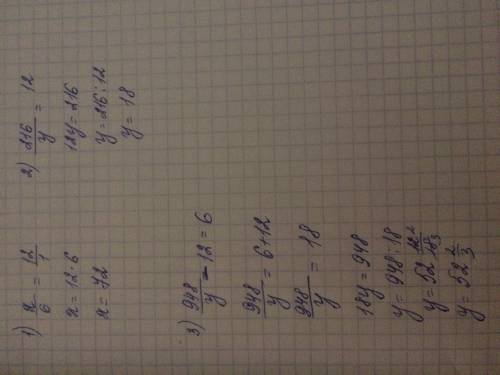 1) x/6 = 12/1
x = 12·6
x = 72
2) 216/y = 12
12y = 216
y = 216:12
y = 18
3) 948/y - 12 = 6
948/y = 6+12
948/y = 18
18y = 948
y = 948:18
y = 52 12/18 2/3
y = 52 2/3